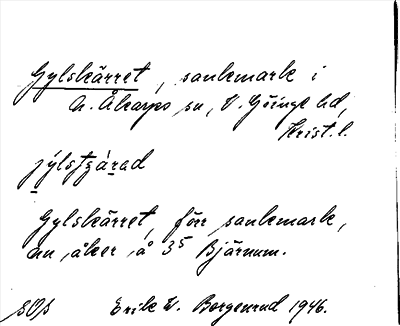 Gylskärret, sankmark i
N. Åkarps sn, V. Göinge hd,
Krist. l.
jýlsʃʒàrad
Gylskärret, förr sankmark,
nu åker å 3⁵ Bjärnum.
SOs Erik W. Borgenrud 1946.